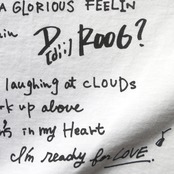 A GLORIOUS FEELIN
in D[di:]ROOG?
laughing at CLOUDs
k up above
in my Heart
I'm ready for LOVE.